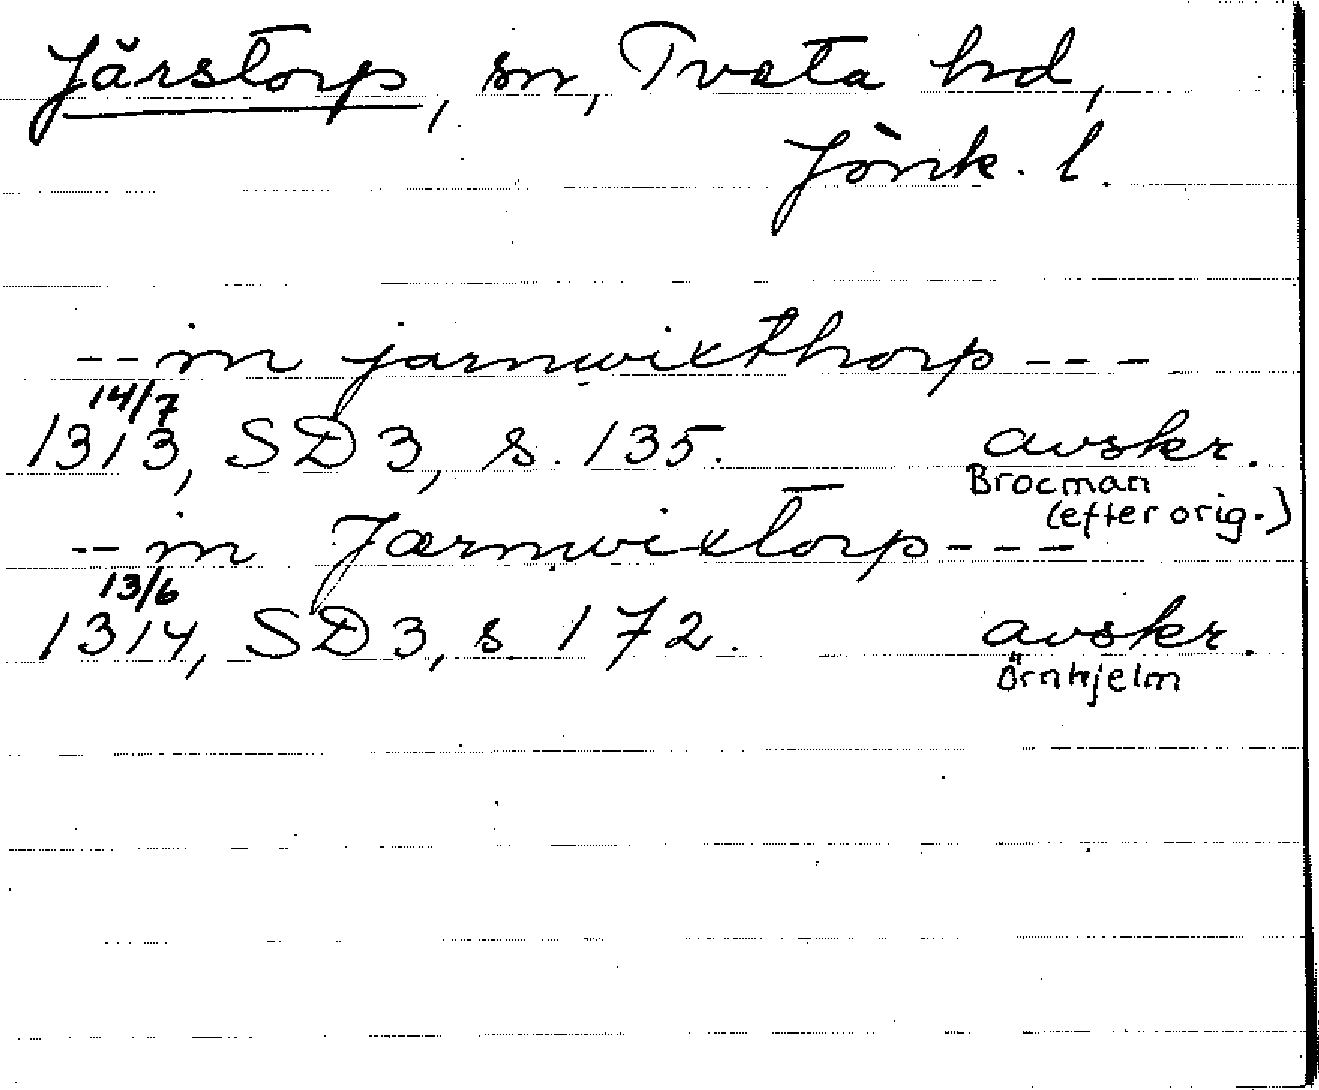 Järstorp, sn, Tveta hd,
Jönk. l.
-- in jarnwixthorp ---
14/7
1313, SD 3, s. 135. avskr.
Brocman
(efter orig.)
-- in Jærnwixtorp ---
13/6
1314, SD 3, s. 172. avskr.
Örnhjelm